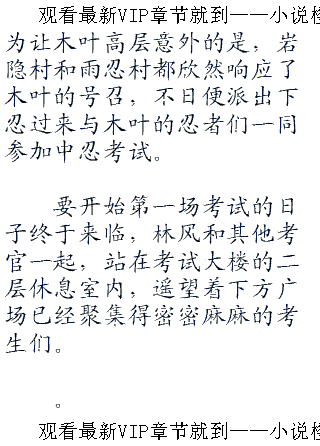 观看最新VIP章节就到——小说
为让木叶高层意外的是，岩
隐村和雨忍村都欣然响应了
木叶的号召，不日便派出下
忍过来与木叶的忍者们一同
参加中忍考试。
要开始第一场考试的日
子终于来临，林风和其他考
官一起，站在考试大楼的二
层休息室内，遥望着下方广
场已经聚集得密密麻麻的考
生们。
。
观看最新VIP章节就到——小说